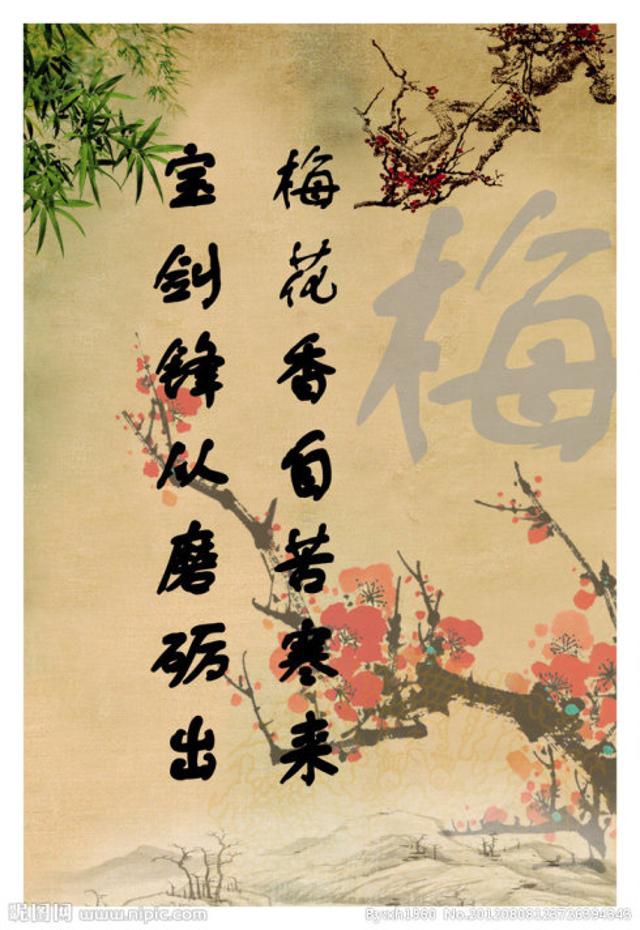 宝剑锋从磨砺出
梅花香自苦寒来
梅
昵图网 www.nipic.com
No.20120808123726394343